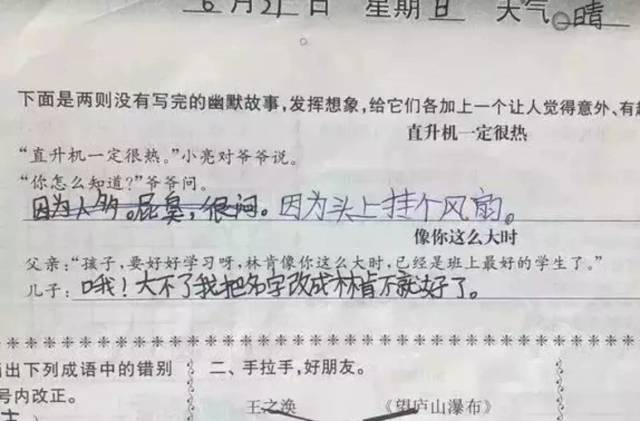 6月21日 星期日 天气:晴
下面是两则没有写完的幽默故事,发挥想象,给它们各加上一个让人觉得意外、有趣
直升机一定很热
“直升机一定很热。”小亮对爷爷说。
“你怎么知道?”爷爷问。
因为人多。屁臭,很闷。因为头上挂个风扇。
像你这么大时
父亲:“孩子,要好好学习呀,林肯像你这么大时,已经是班上最好的学生了。”
儿子:哦!大不了我把名字改成林肯不就好了。
出下列成语中的错别 二、手拉手,好朋友。
号内改正。
王之涣 《望庐山瀑布》